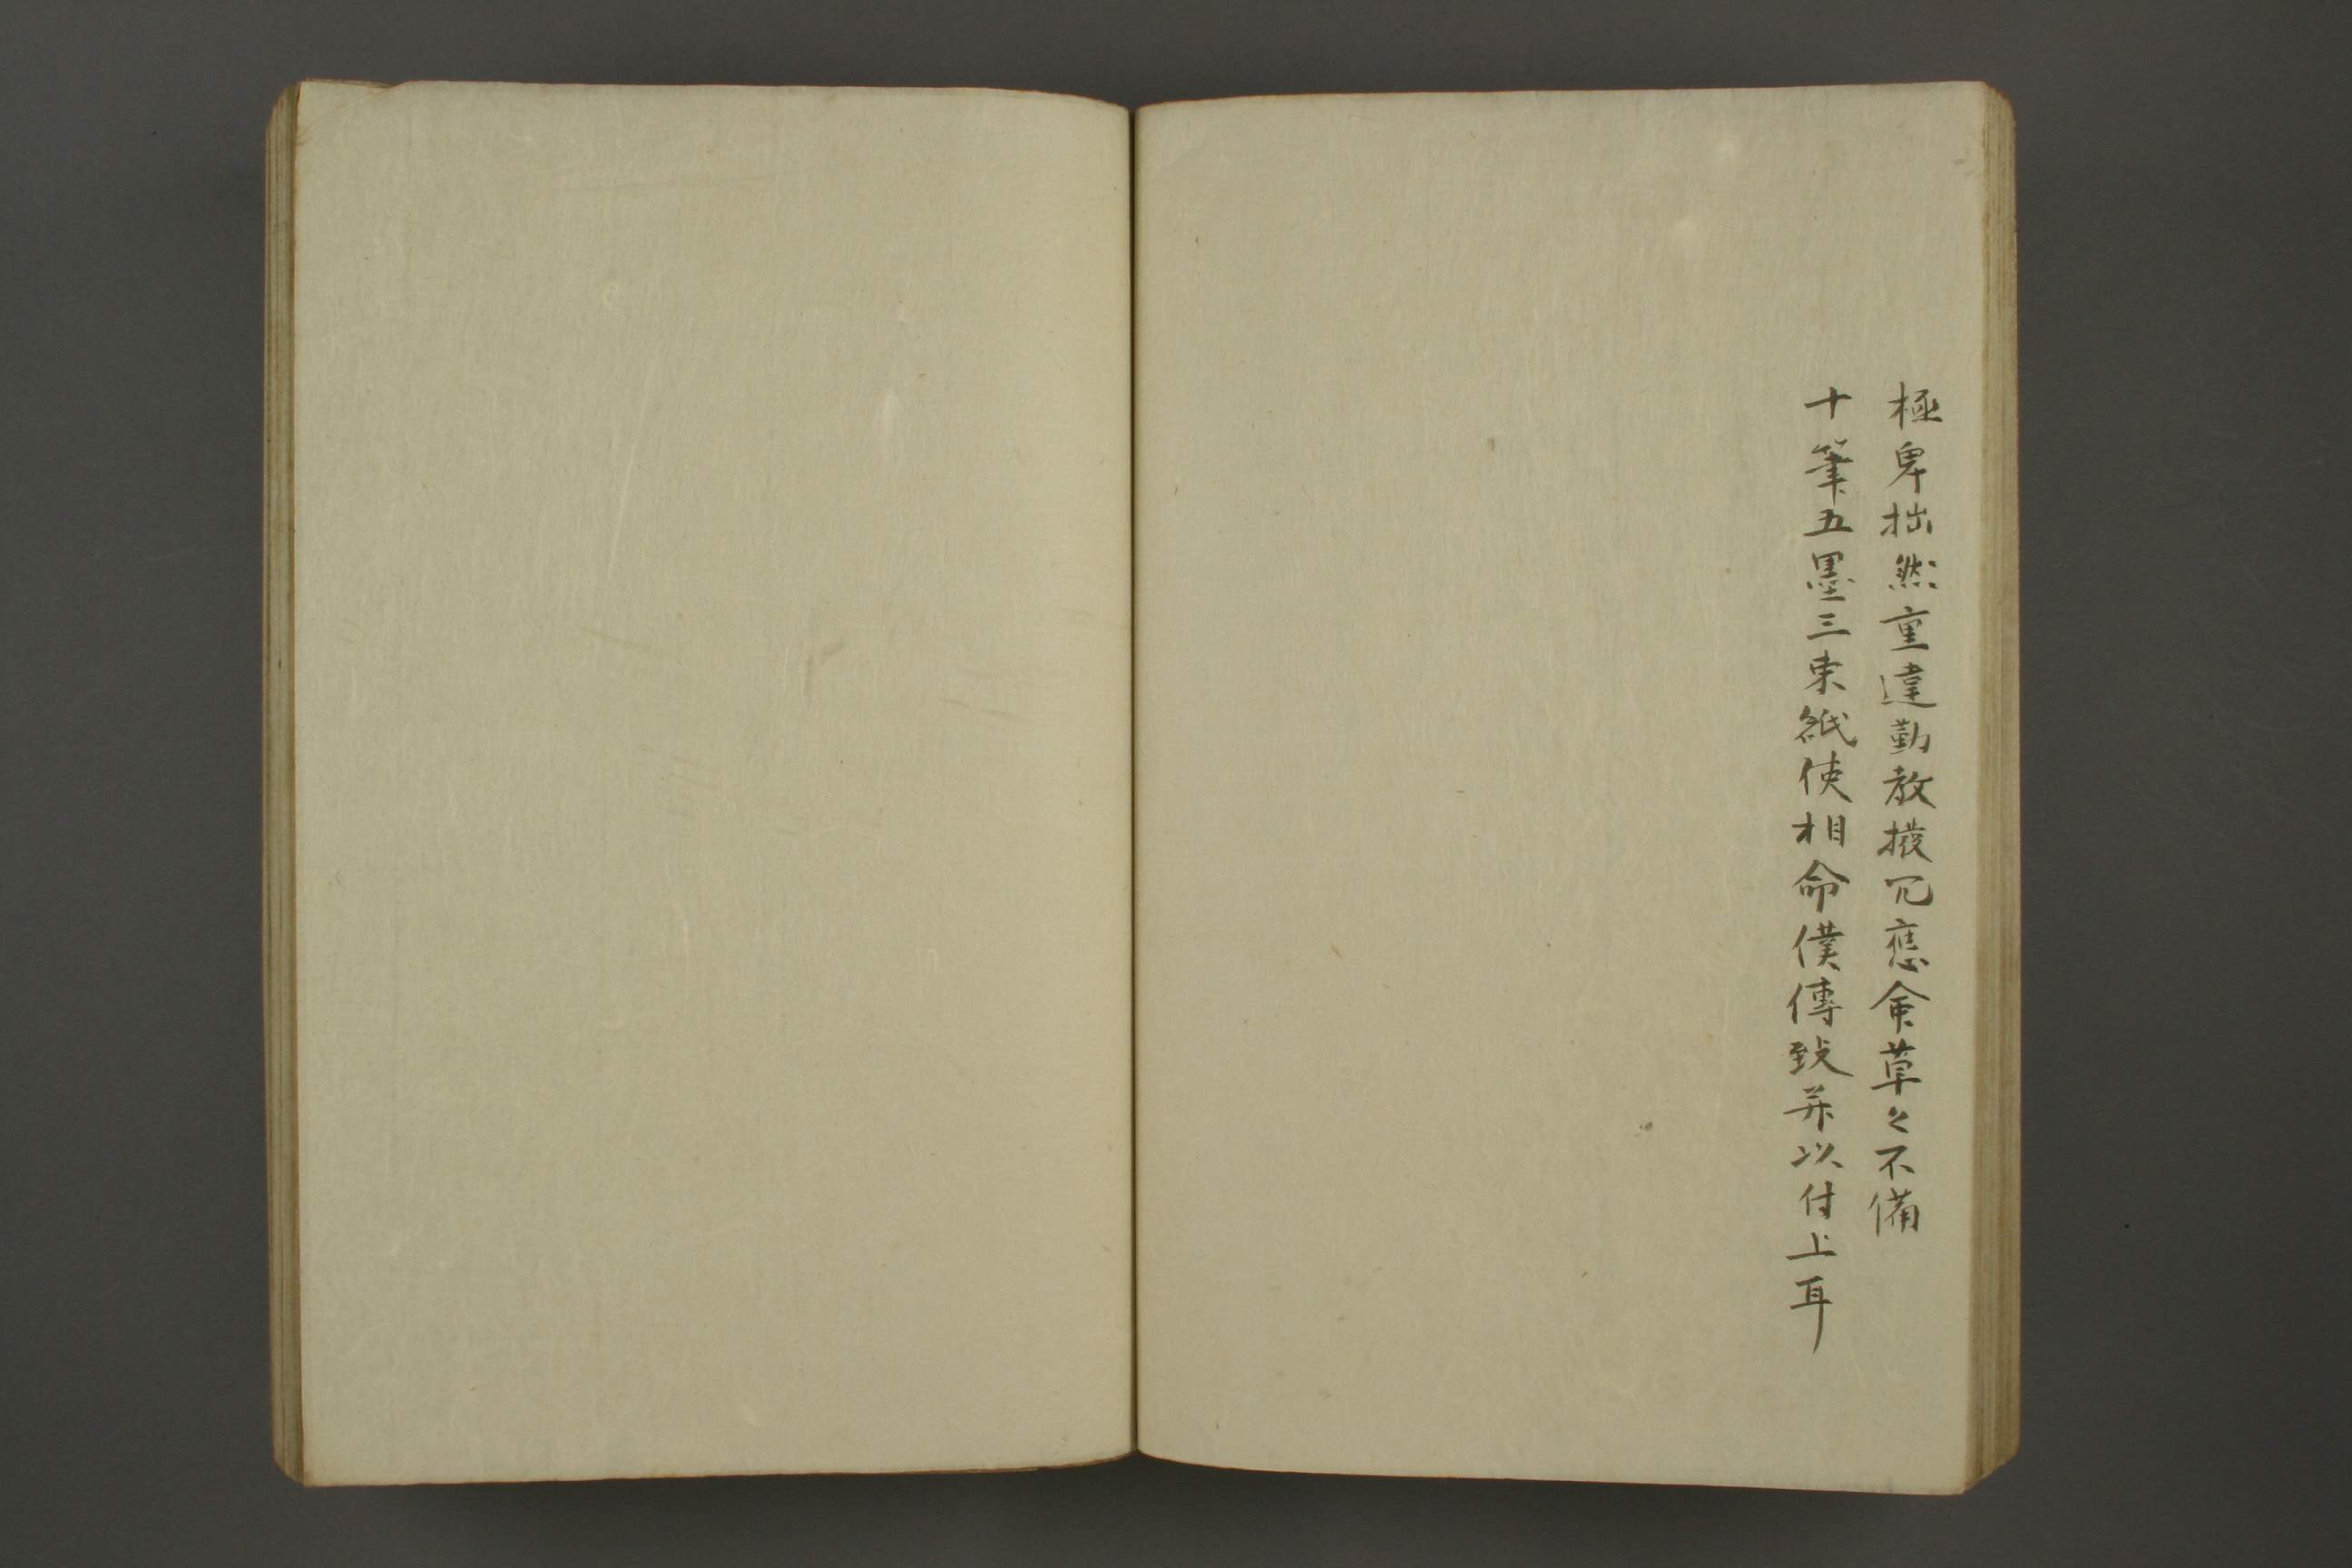 極卑拙然重違勤教撥冗應命草々不備
十筆五墨三束紙使相命僕傳致并以付上耳